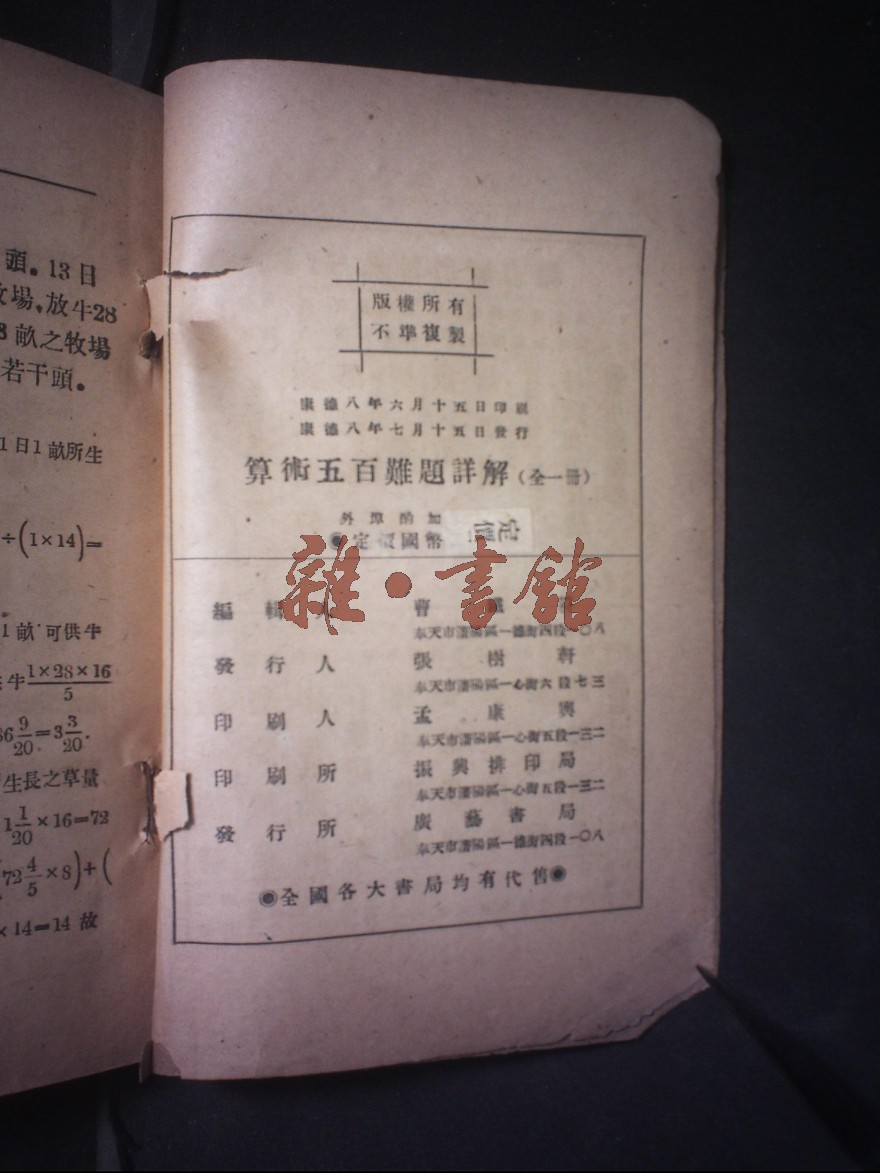 頭。13日
牧場,放牛28
8畝之牧場
若干頭。
1日1畝所生
÷(1×14)=
1畝可供牛
牛 1×28×16/5
36 9/20=3 3/20.
生長之草量
1 1/20×16=72
72 4/5×8)+(
×14=14 故
版權所有
不準複製
康德八年六月十五日印刷
康德八年七月十五日發行
算術五百難題詳解(全一冊)
外埠酌加
定價國幣
定價
雜·書館
編輯人 曹
奉天市瀋陽區一德街四段一〇八
發行人 張樹軒
奉天市瀋陽區一心街六段七三
印刷人 孟康興
奉天市瀋陽區一心街五段一三二
印刷所 振興排印局
奉天市瀋陽區一心街五段一三二
發行所 廣藝書局
奉天市瀋陽區一德街四段一〇八
◉全國各大書局均有代售◉